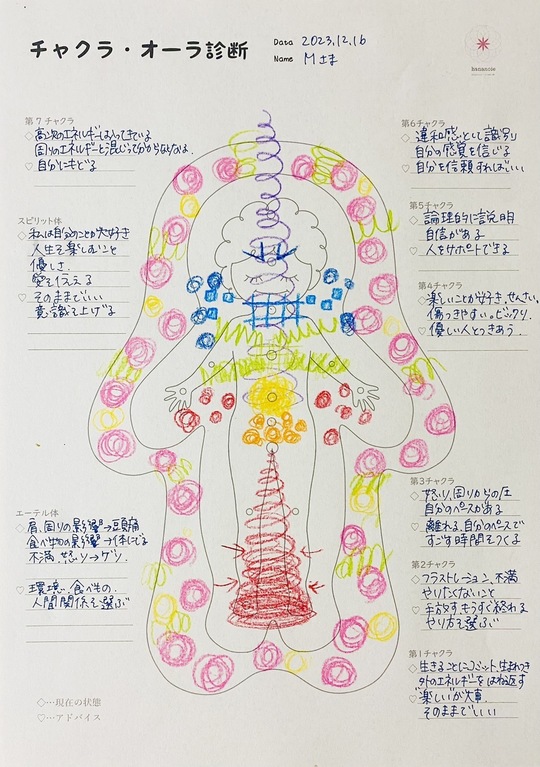 チャクラ・オーラ診断
Data 2023.12.16
Name Mさま
hananoie
第7チャクラ
◇高次のエネルギーは入ってきている
周りのエネルギーと混じって分からなくなる。
♡自分にもどる
スピリット体
◇私は自分のことが大好き
人生を楽しむこと
優しさ
愛を伝える
♡そのままでいい
意識を上げる
エーテル体
◇肩、周りの影響→頭痛
食べ物の影響→体にでる
不満、怒り→
♡環境、食べもの、
人間関係を選ぶ
◇…現在の状態
♡…アドバイス
第6チャクラ
◇違和感として識別
自分の感覚を信じる
♡自分を信頼すればいい
第5チャクラ
◇論理的に説明
自信がある
♡人をサポートできる
第4チャクラ
◇楽しいことが好き、せんさい、
傷つきやすい。ビックリ。
♡優しい人とつきあう。
第3チャクラ
◇怒り、周りからの圧
自分のペースがある
♡離れる、自分のペースで
すごす時間をつくる
第2チャクラ
◇フラストレーション、不満
やりたくないこと
♡手放す、もうすぐ終わる
やり方を選ぶ
第1チャクラ
◇生きることにコミット、生まつき
外のエネルギーをはね返す
♡"楽しい"が大事
そのままでいい